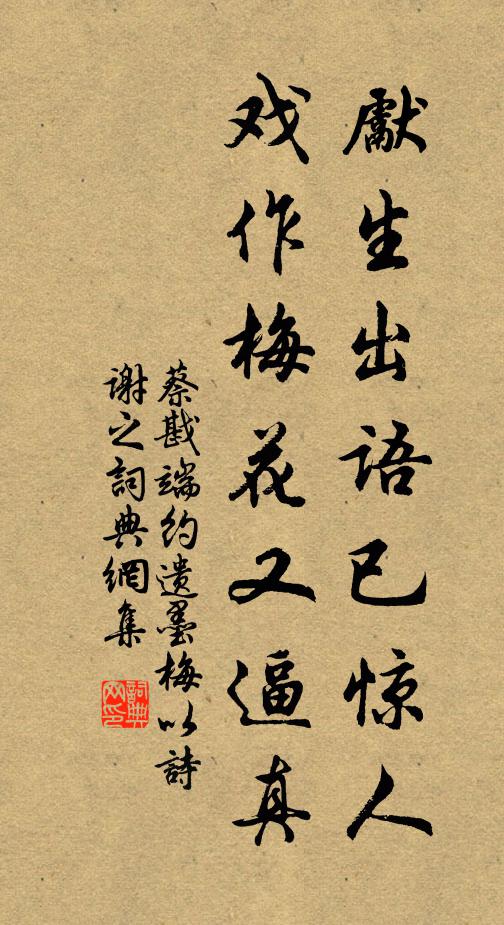 獻生出语已惊人
戏作梅花又逼真
蔡戡端约遗墨梅以詩
谢之詞典網集
詞典
网印